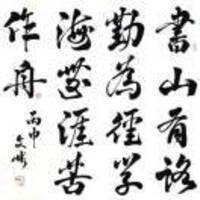 書山有路
勤為徑学
海無涯苦
作舟
丙申